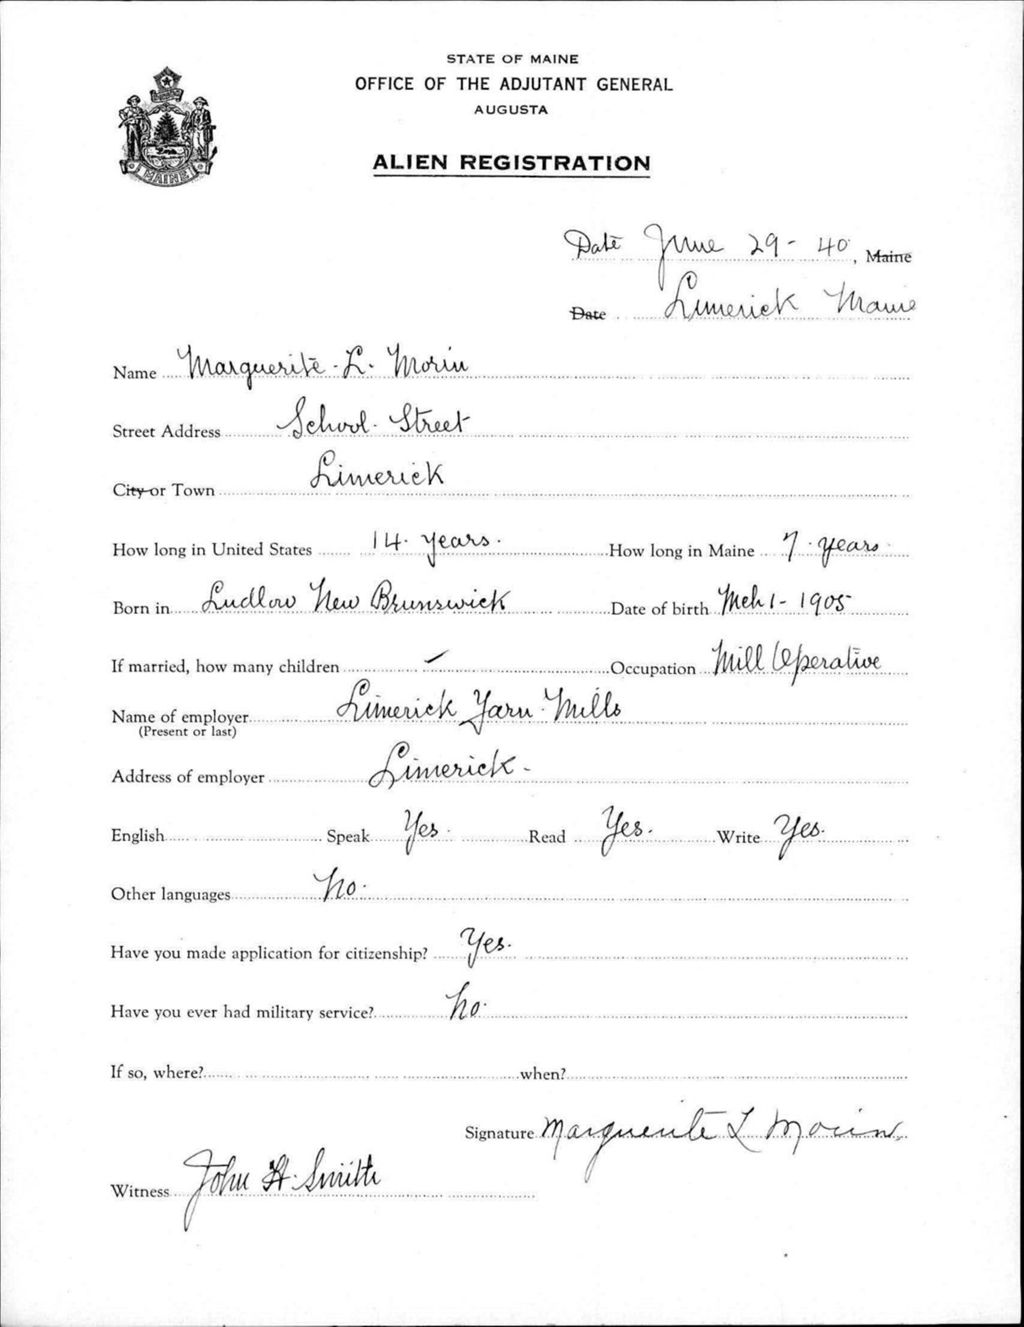 STATE OF MAINE
OFFICE OF THE ADJUTANT GENERAL
AUGUSTA
ALIEN REGISTRATION
MAINE
Date June 29 - 40, Maine
Date Limerick Maine
Name Marguerite - L. Morin
Street Address School - Street
City or Town Limerick
How long in United States 14 - years. How long in Maine 7 - years
Born in Ludlow New Brunswick Date of birth Mch 1 - 1905
If married, how many children Occupation Mill Operative
Name of employer Limerick Yarn Mills
(Present or last)
Address of employer Limerick -
English Speak Yes. Read Yes. Write Yes.
Other languages No.
Have you made application for citizenship? Yes.
Have you ever had military service? No.
If so, where? when?
Signature Marguerite L Morin
Witness John H. Smith